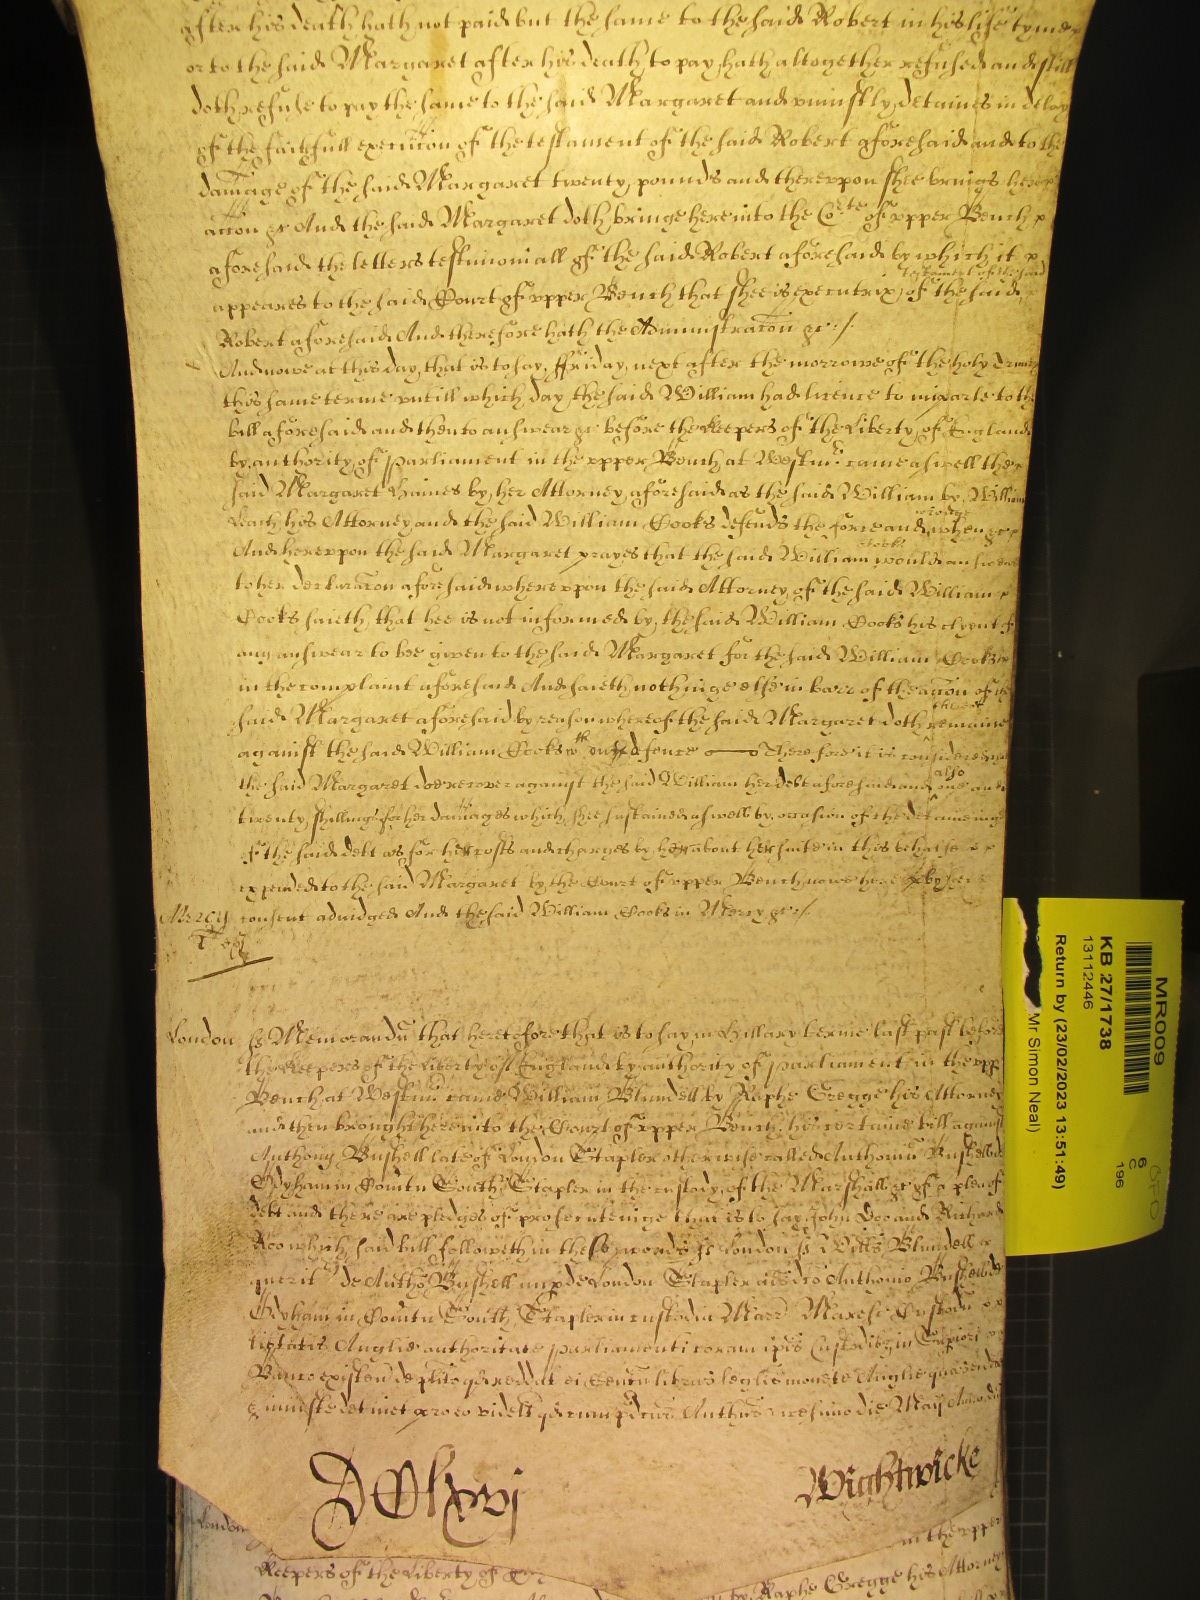 after his death hath not paid but the same to the said Robert in his life tyme
or to the said Margaret after his death to pay hath altogether refused and still
doth refuse to pay the same to the said Margaret and uniustly detaines in delay
of the faithfull execucion of the testament of the said Robert aforesaid and to the
damage of the said Margaret twenty pounds and thereuppon shee brings her
accon &c And the said Margaret doth bringe here into the Corte of upper Bench
aforesaid the letters testimoniall of the said Robert aforesaid by which it
testament of the said
appeares to the said Court of upper Bench that shee is executrix of the said
Robert aforesaid And therefore hath the Administracon &c :/.
And nowe at this day that is to say ffriday next after the morrowe of the holy
this same terme untill which day the said William had licence to imparle to the
bill aforesaid and then to answear &c before the Keepers of the Liberty of England
by authority of parliament in the upper Bench at Westmr came aswell the
said Margaret Haines by her Attorney aforesaid as the said William by William
Leach his Attorney and the said William Cooks defends the force and when &c
And hereuppon the said Margaret prayes that the said William would answear
Cooks
to her declaracon aforesaid whereuppon the said Attorney of the said William
Cooks saieth that hee is not informed by the said William Cooks his clyent of
any answear to bee given to the said Margaret for the said William Cooks
in the complaint aforesaid And saieth nothinge else in barr of the accon of the
said Margaret aforesaid by reason whereof the said Margaret doth remaine
thereof
against the said William Cooks wth out defence Therefore it is considered
the said Margaret doe recover against the said William her debt aforesaid and also one and
twenty shillings for her damages which shee sustained aswell by occasion of the detaineinge
of the said debt as for her costs and charges by her about her suite in this behalfe
expended to the said Margaret by the Court of upper Bench nowe here by her
Mercy consent adiudged And the said William Cooks in Mercy &c :/.
London ss Memorandu that heretofore that is to say in Hillary terme last past before
the Keepers of the Liberty of England by authority of parliament in the upp
Bench at Westmr came William Blundell by Raphe Gregge his Attorney
and then brought here into the Court of upper Bench his certaine bill against
Anthony Bushell late of London Stapler otherwise called Anthoniu Bushell de
Odyham in Comitu South Stapler in the custody of the Marshall &c of a plea of
debt and there are pledges of prosecuteinge that is to say John Doe and Richard
Roo which said bill followeth in these words ss London ss Willus Blundell
querit de Anthō Bushell nup de London Stapler als dco Anthonio Bushell de
Odyham in Comitu South Stapler in custodia Marr Maresc Custodu
libtatis Anglie authoritate parliamenti coram ipis Custodibz in Supiori
Banco existen de plito qd reddat ei Centu libras legalis monete Anglie quas ei debet
& iniuste detinet pro eo videlt qd cum pdcus Anthus vicesimo die Maij Anno dni
DClxvj
Wightwicke
London
in the upper
Keepers of the Liberty of
by Raphe Gregge his Attorney
MR009
KB 27/1738
13112446
Return by (23/02/2023 13:51:49)
Mr Simon Neal)
6
C
196